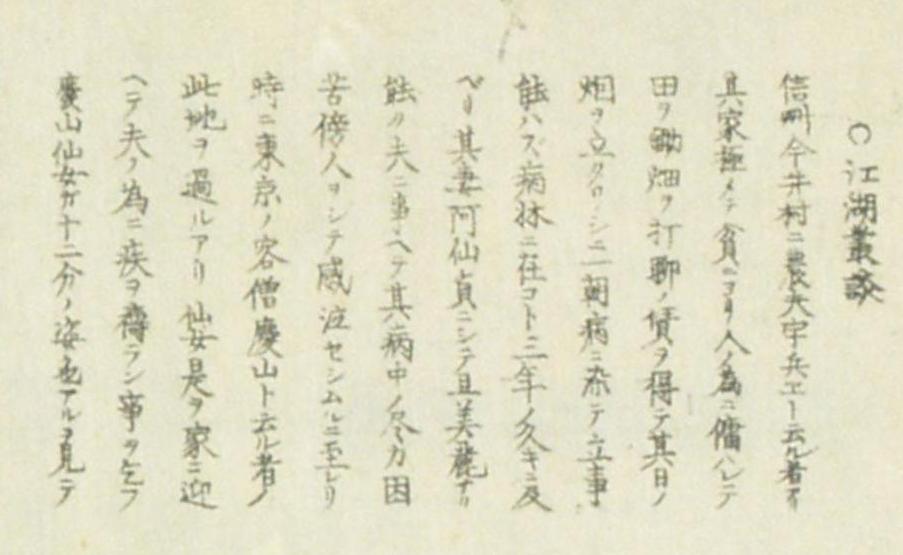 ○江湖叢談
信州今井村ニ農夫宇兵エト云ル者アリ
其家極メテ貧ニヨリ人ノ為ニ傭ハレテ
田ヲ鋤畑ヲ打聊ノ賃ヲ得テ其日ノ
烟ヲ立クロシニ一朝病ニ染テ立事
能ハズ病牀ニ在コト三年ノ久キニ及
ベリ其妻阿仙貞ニシテ且美麗ナリ
能ク夫ニ事ヘテ其病中ノ尽力困
苦傍人ヲシテ感泣セシムルニ至レリ
時ニ東京ノ客僧慶山ト云ル者ノ
此地ヲ過ルアリ仙女是ヲ家ニ迎
ヘテ夫ノ為ニ疾ヲ禱ラン事ヲ乞フ
慶山仙女ガ十二分ノ姿色アルヲ見テ